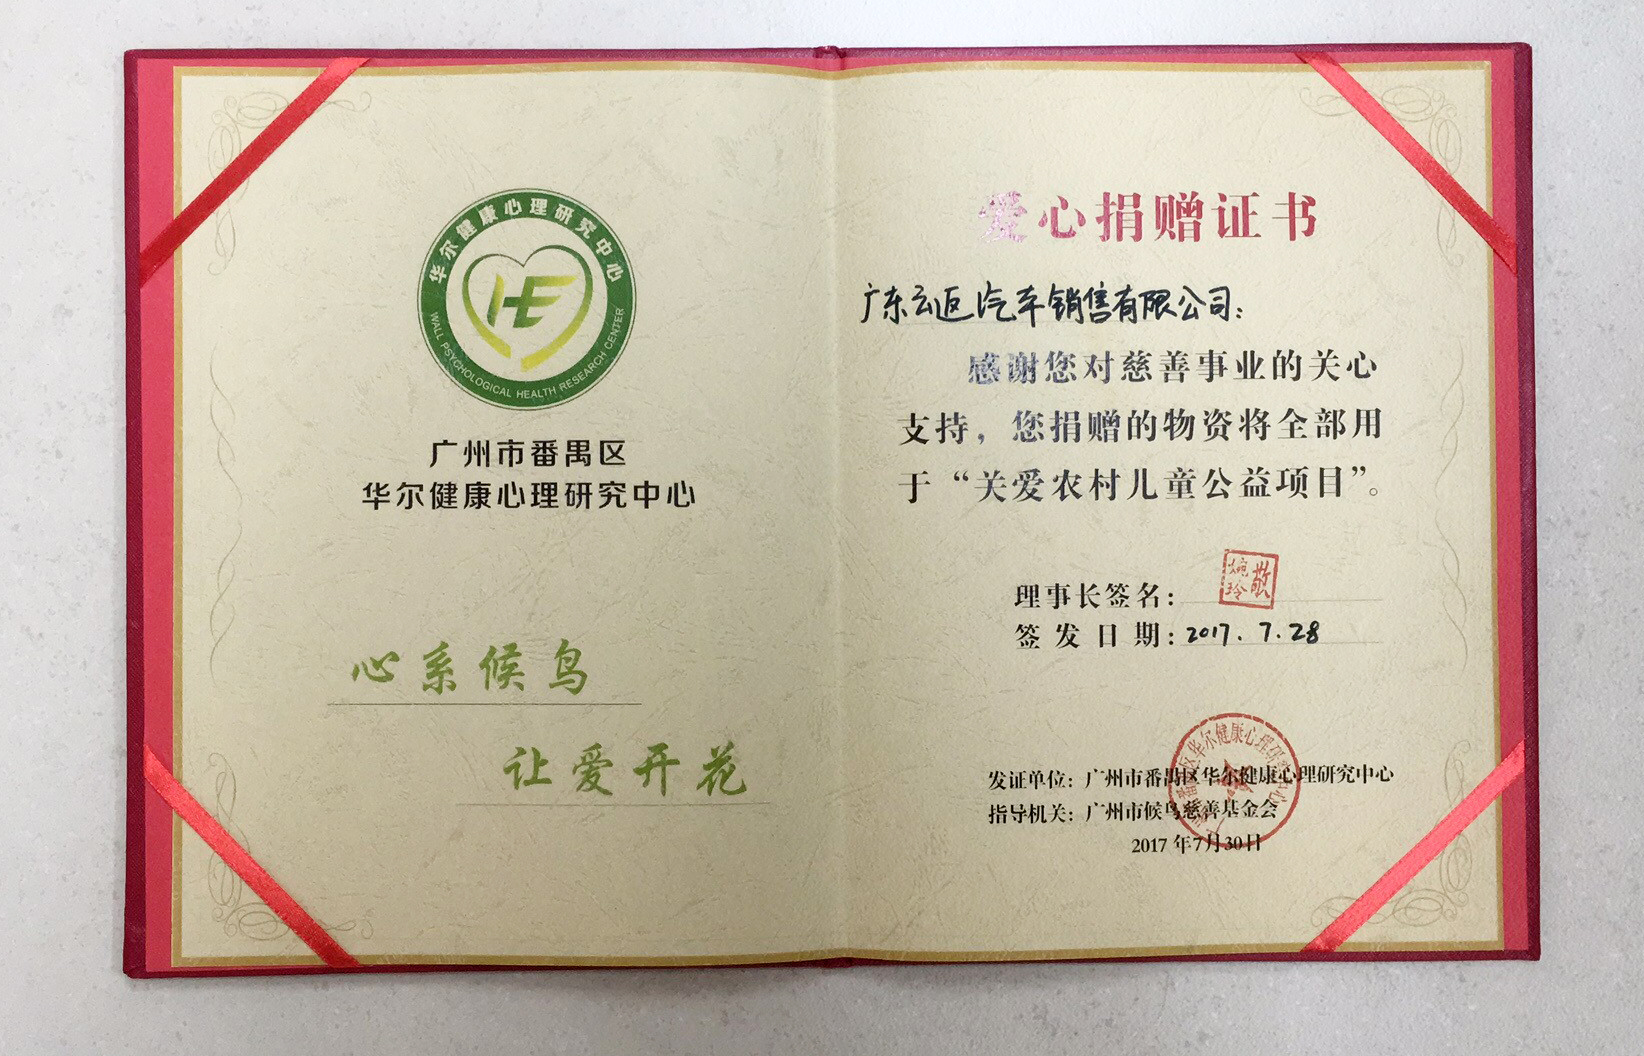 华尔健康心理研究中心
WALL PSYCHOLOGICAL HEALTH RESEARCH CENTER
HE
广州市番禺区
华尔健康心理研究中心
心系候鸟
让爱开花
爱心捐赠证书
广东云迅汽车销售有限公司:
感谢您对慈善事业的关心
支持，您捐赠的物资将全部用
于“关爱农村儿童公益项目”。
理事长签名:
敬婉玲
签发日期: 2017.7.28
发证单位: 广州市番禺区华尔健康心理研究中心
指导机关: 广州市候鸟慈善基金会
2017年7月30日